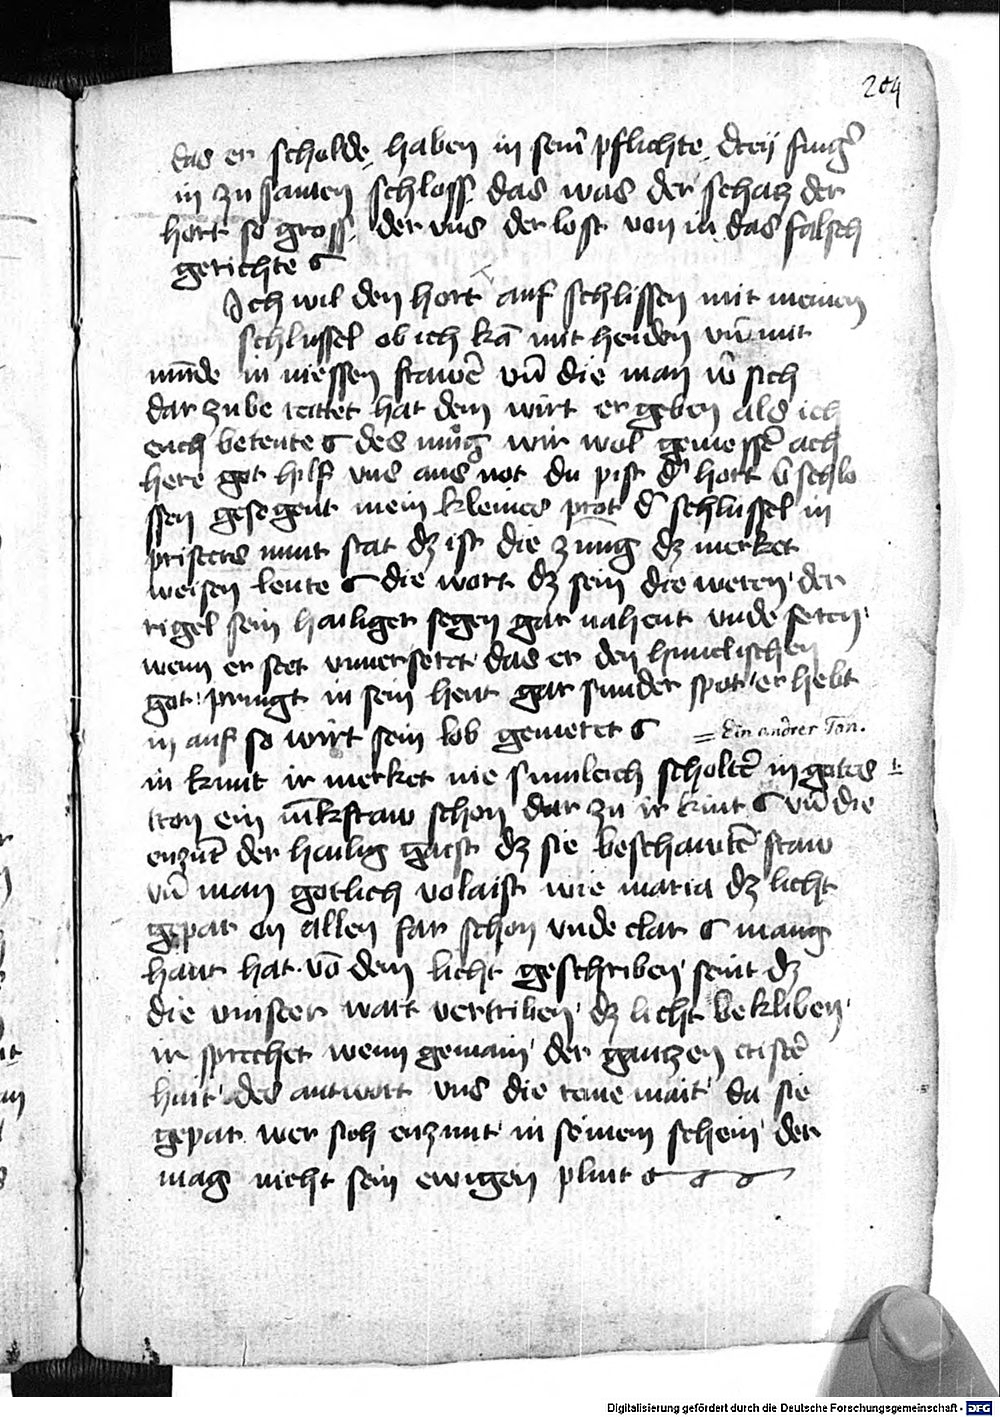 204
das er scholde haben in sein̄ pflichte dreÿ fing̉
in zu samen schloss das was der schatz der
hort so gross der uns der lost von in das falsch
gerichte
Ich wil den hort auf schlissen mit meinen
schlussel ob ich kā mit henden vn̄ mit
mūde in niessen frawē vn̄ die man sich
dar zu be reittet hat dem wirt er geben als ich
euch beteute des mug wir wol geniessē ach
here got hilf uns aus not du pist d̉ hort schlo
ssen gesegent mein kleines prot d̉ schlussel in
pristers munt stat dz ist die zung dz merket
weisen leute die wort dz sein die weren der
rigel sein hailiger segen gar nahent vnde seren
wenn er stet das er den himelischen
got pringt in sein hent gar sunder spot er hebt
in auf so wirt sein lob gemeret
= Ein andrer Ton.
in kunt ir merket nie sunleich scholtē in gotes 1.
tron ein schon dar zu ir kint vn̄ die
enzūt der hailig gaist dz sie beschawtē fraw
vn̄ man gotlich volaist wie maria dz licht
gepar on allen far schon vnde clar mang
haut hat vō dem licht geschriben seint dz
die vinster wart vertriben dz licht bekliben
ir sprechet wenn gemain der gantzen cristē
hait des antwort uns die reine mait da sie
gepar wer sich enzunt in seinem schein der
mag nicht sein ewigen plint
Digitalisierung gefördert durch die Deutsche Forschungsgemeinschaft - DFG